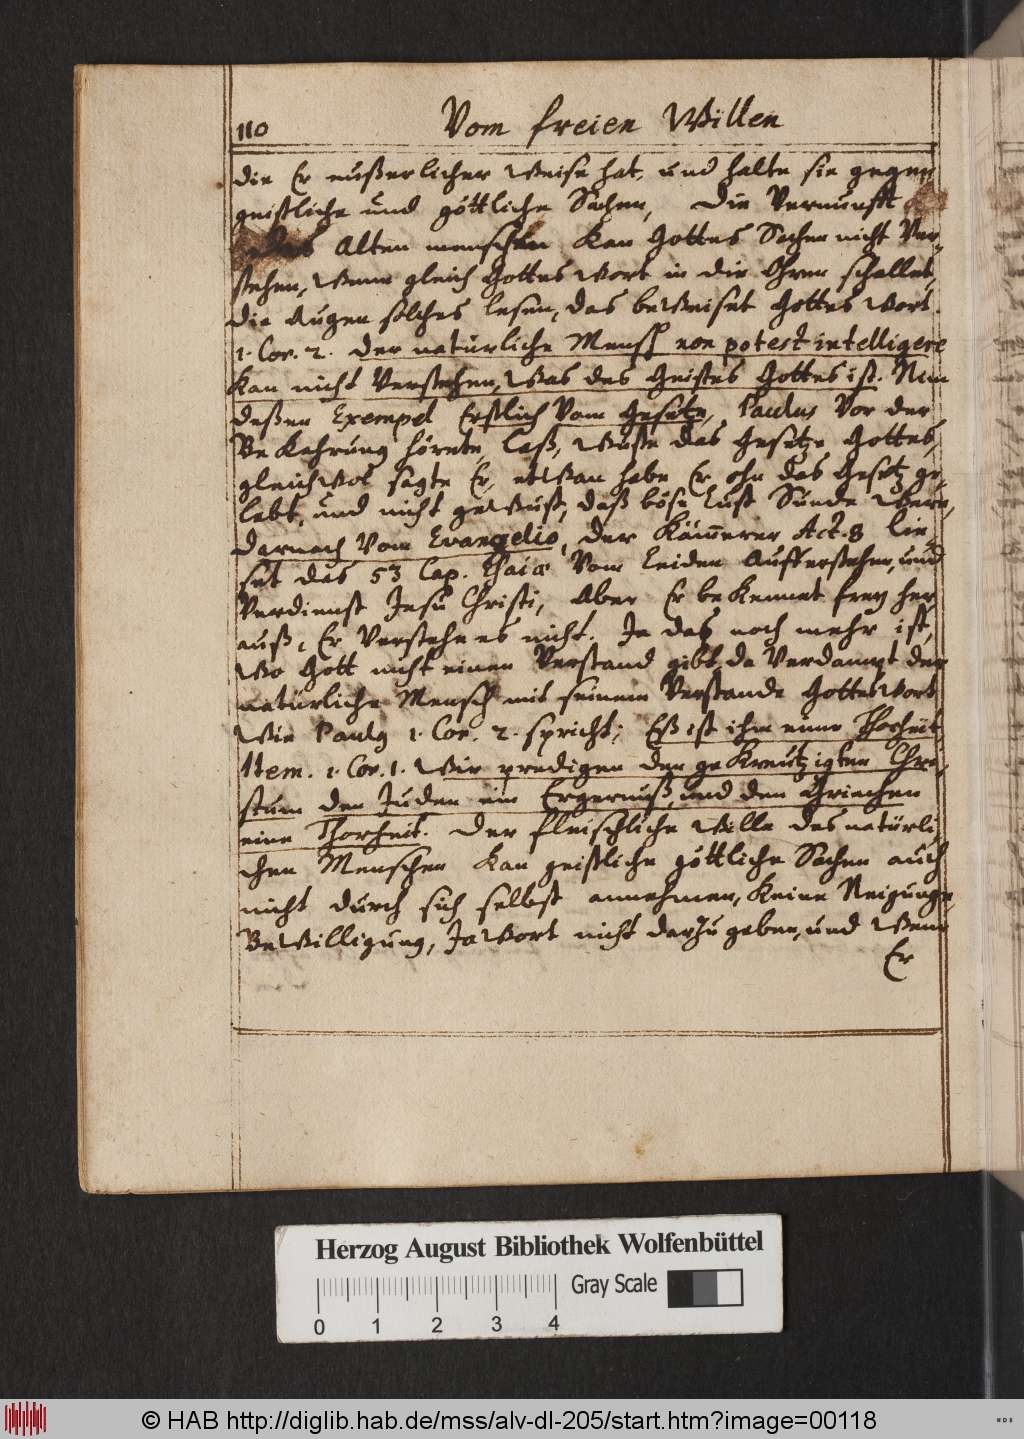 110
Vom freien Willen
die Er eußerlicher Weise hat, und halte sie gegen
geistliche und göttliche Sachen, Die Vernunfft
des Alten menschen Kan Gottes Sachen nicht Ver-
stehen, Wenn gleich Gottes Wort in die Ohren schallet,
die Augen solches lesen, das beweiset Gottes Wort.
1. Cor. 2. der natürliche Mensch non potest intelligere
Kan nicht Verstehen, Was des Geistes Gottes ist. Nim
deßen Exempel Erstlich Vom Gesetze, Paulus Vor der
BeKehrung hörete, laß, Wuste das Gesetze Gottes,
gleichwol sagte Er, etwan habe Er ohn das Gesetz ge-
lebt, und nicht gewust, daß böse Lust Sünde Were,
darnach Vom Evangelio, der Käm̄erer Act. 8 lie-
set das 53 Cap. Esaiæ Vom Leiden Aufferstehen, und
Verdienst Jesu Christi, Aber Er beKennet frey her-
auß, Er Verstehe es nicht. Ja das noch mehr ist,
Wo Gott nicht einen Verstand gibt, da Verdampt der
natürliche Mensch mit seinem Verstande Gottes Wort
Wie Paulus 1. Cor. 2. spricht; Eß ist ihm eine Thorheit
Item. 1. Cor. 1. Wir predigen den geKreutzigten Chri-
stum den Juden ein Ergernuß, und den Griechen
eine Thorheit. Der fleischliche Wille des natürli-
chen Menschen Kan geistliche göttliche Sachen auch
nicht durch sich selbst annehmen, Keine Neigunge,
BeWilligung, JaWort nicht darzu geben, und Wenn
Er
Herzog August Bibliothek Wolfenbüttel
Gray Scale
0 1 2 3 4
© HAB http://diglib.hab.de/mss/alv-dl-205/start.htm?image=00118